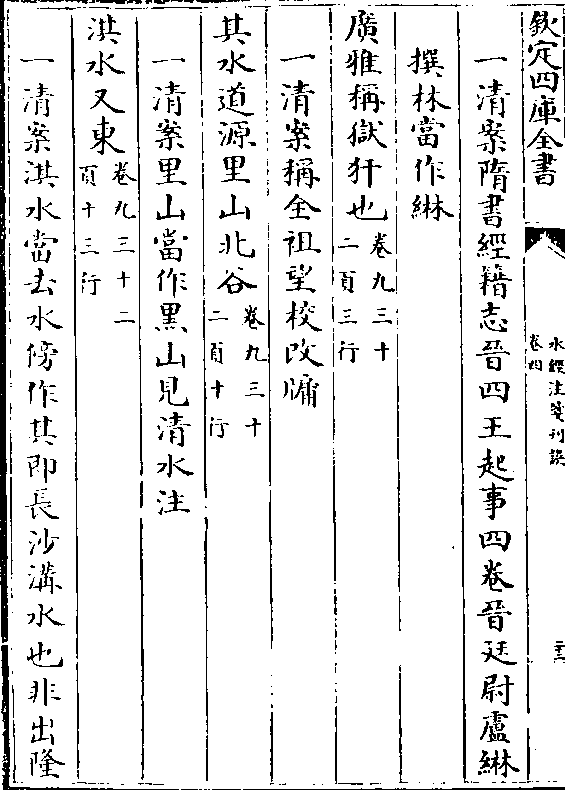 欽定四庫全書
水經注箋刊誤
卷四
二十三
一清案隋書經籍志晉四王起事四卷晉廷尉盧綝
撰林當作綝
廣雅稱獄犴也卷九三十
二頁三行
一清案稱全祖望校改牗
其水道源里山北谷卷九三十
二頁十行
一清案里山當作黑山見清水注
淇水又東卷九三十二
頁十三行
一清案淇水當去水傍作其即長沙溝水也非出隆